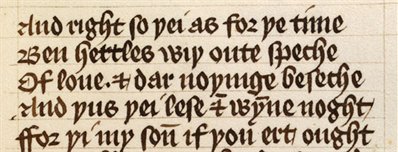 And right so yei as for ye time
Ben hertles wiy oute speche
Of loue. & dar noyinge beseche
And yus yei lese & wȳne noght
ffor yi my sou̅ if you ert ought